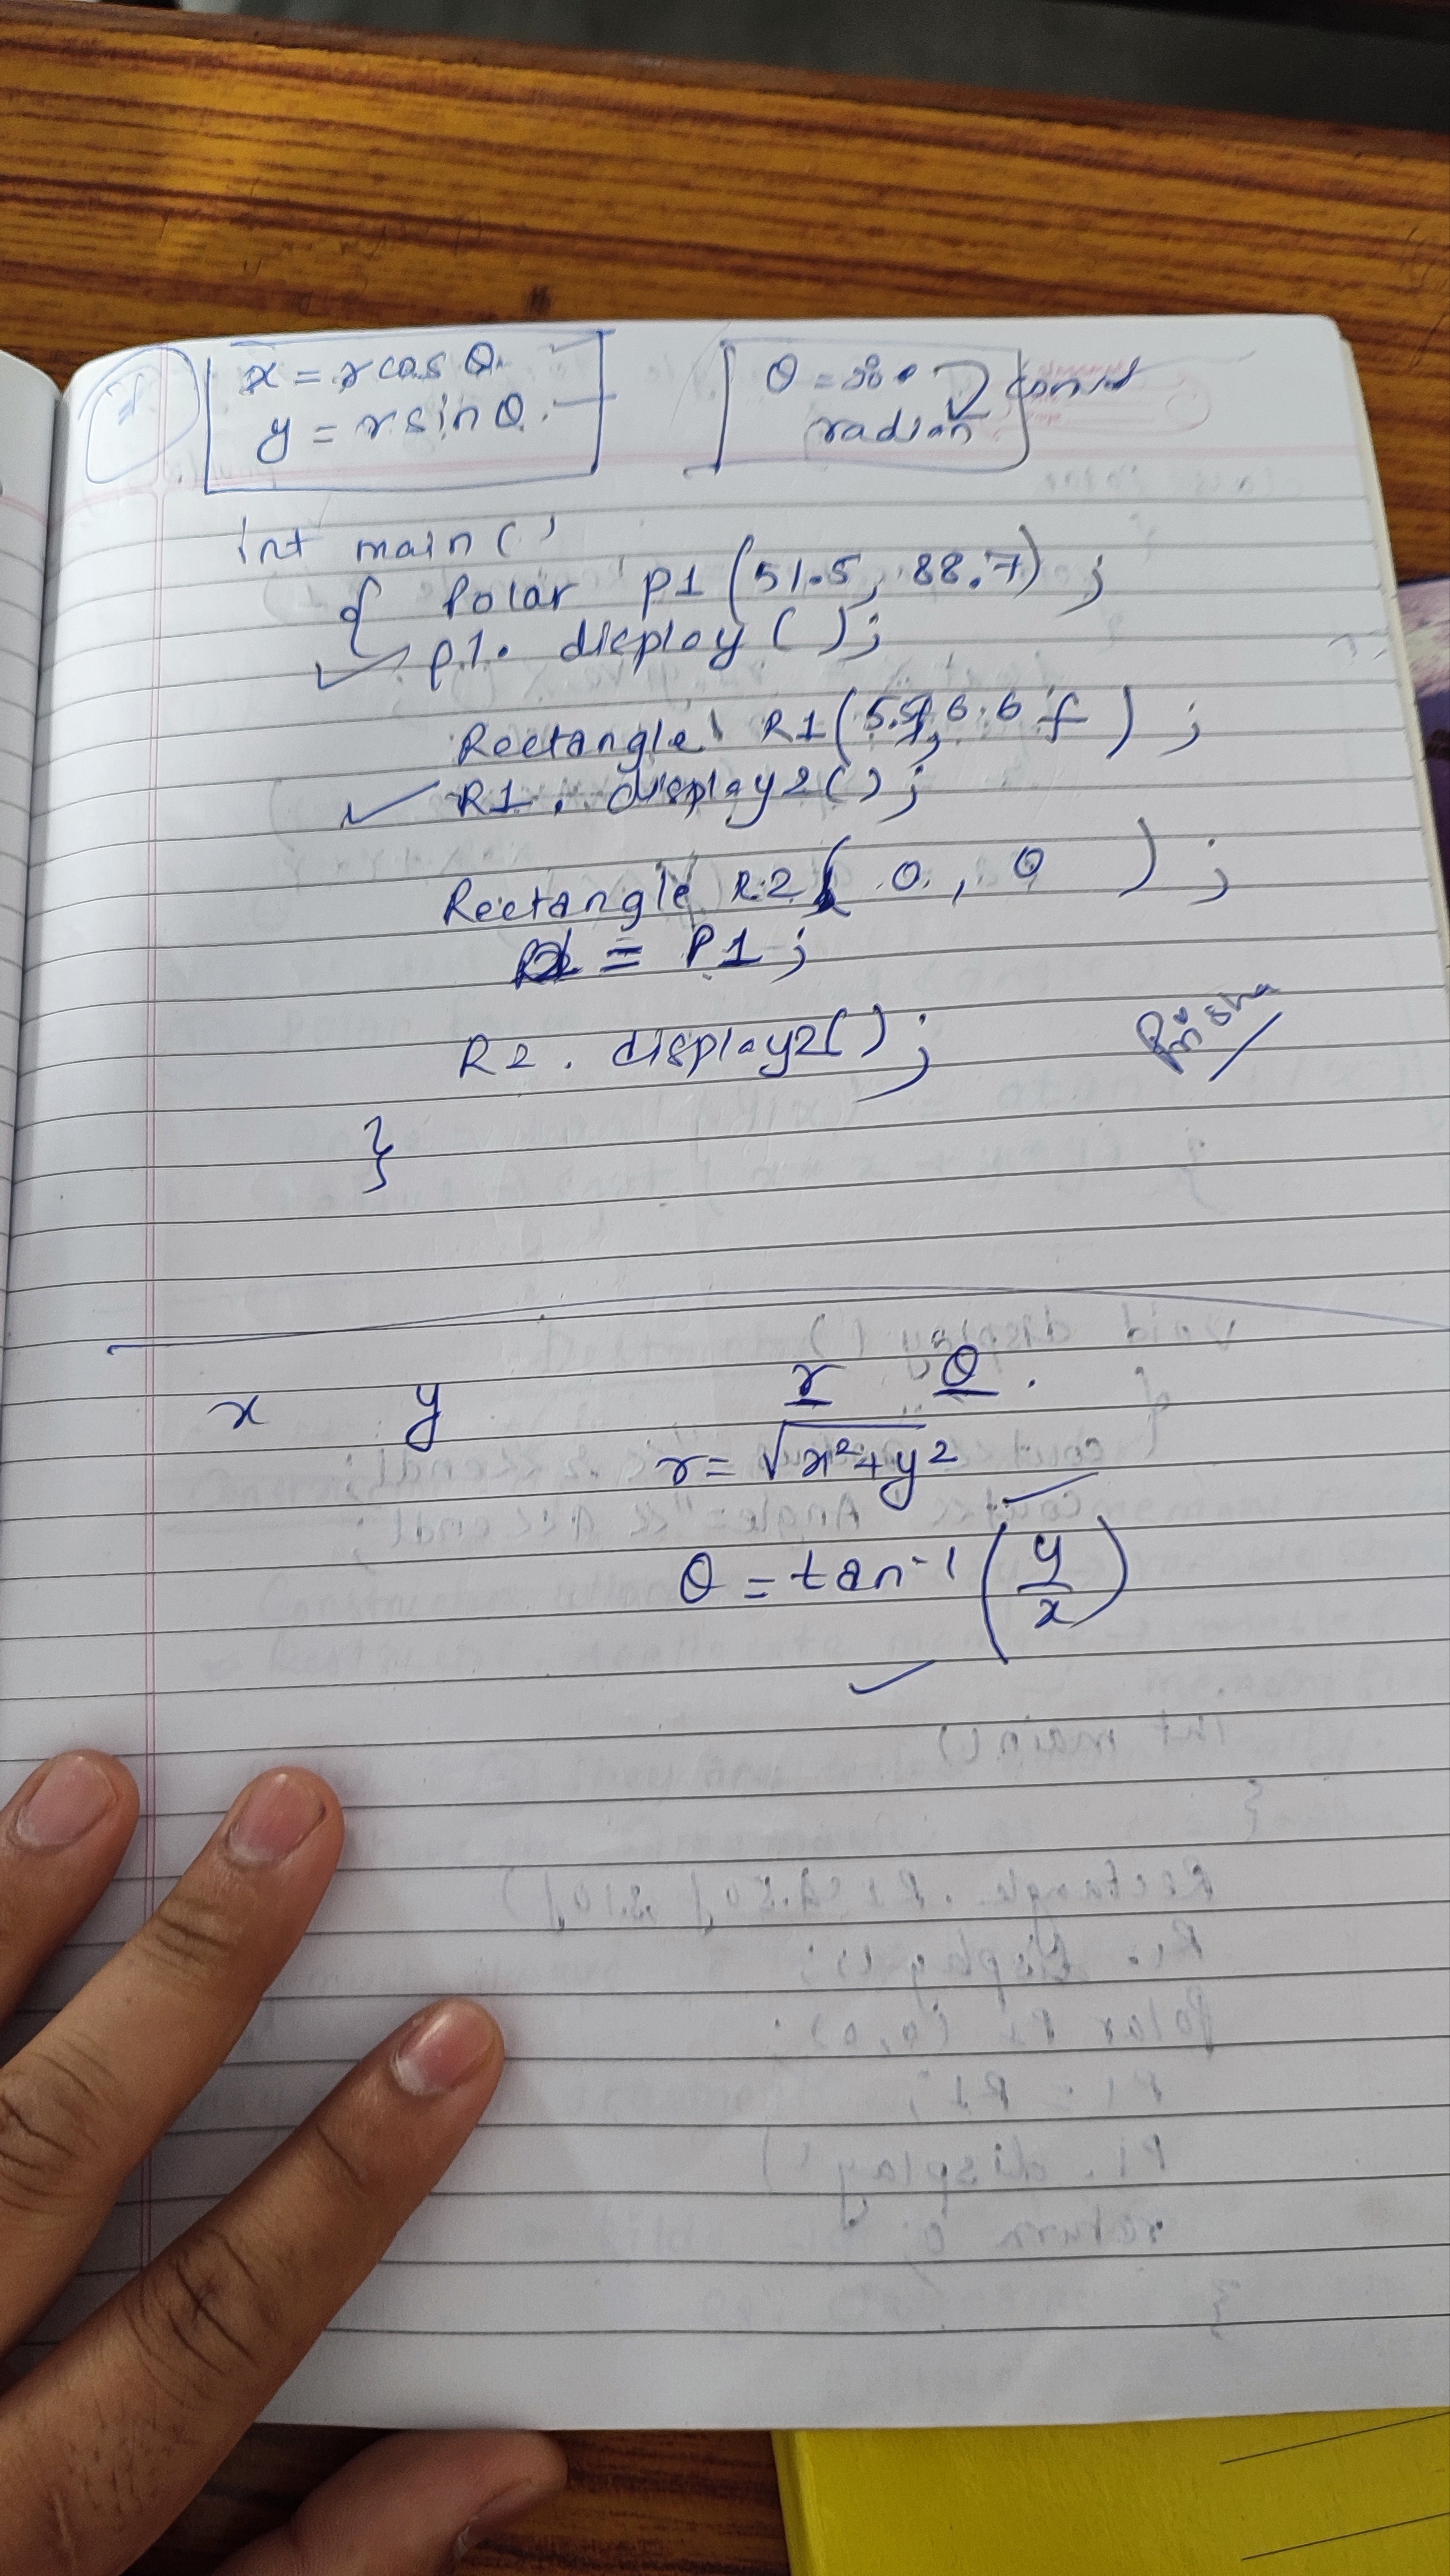 x = r cos θ.
y = r sin θ.
θ = 30°
radian
int main()
{ Polar P1 (51.5, 88.7);
p1. display();
Rectangle R1(5.5f, 6.6f);
R1. display2();
Rectangle R2( 0, 0 );
= P1;
R2. display2();
}
x y r θ.
r = √x²+y²
θ = tan⁻¹ (y/x)